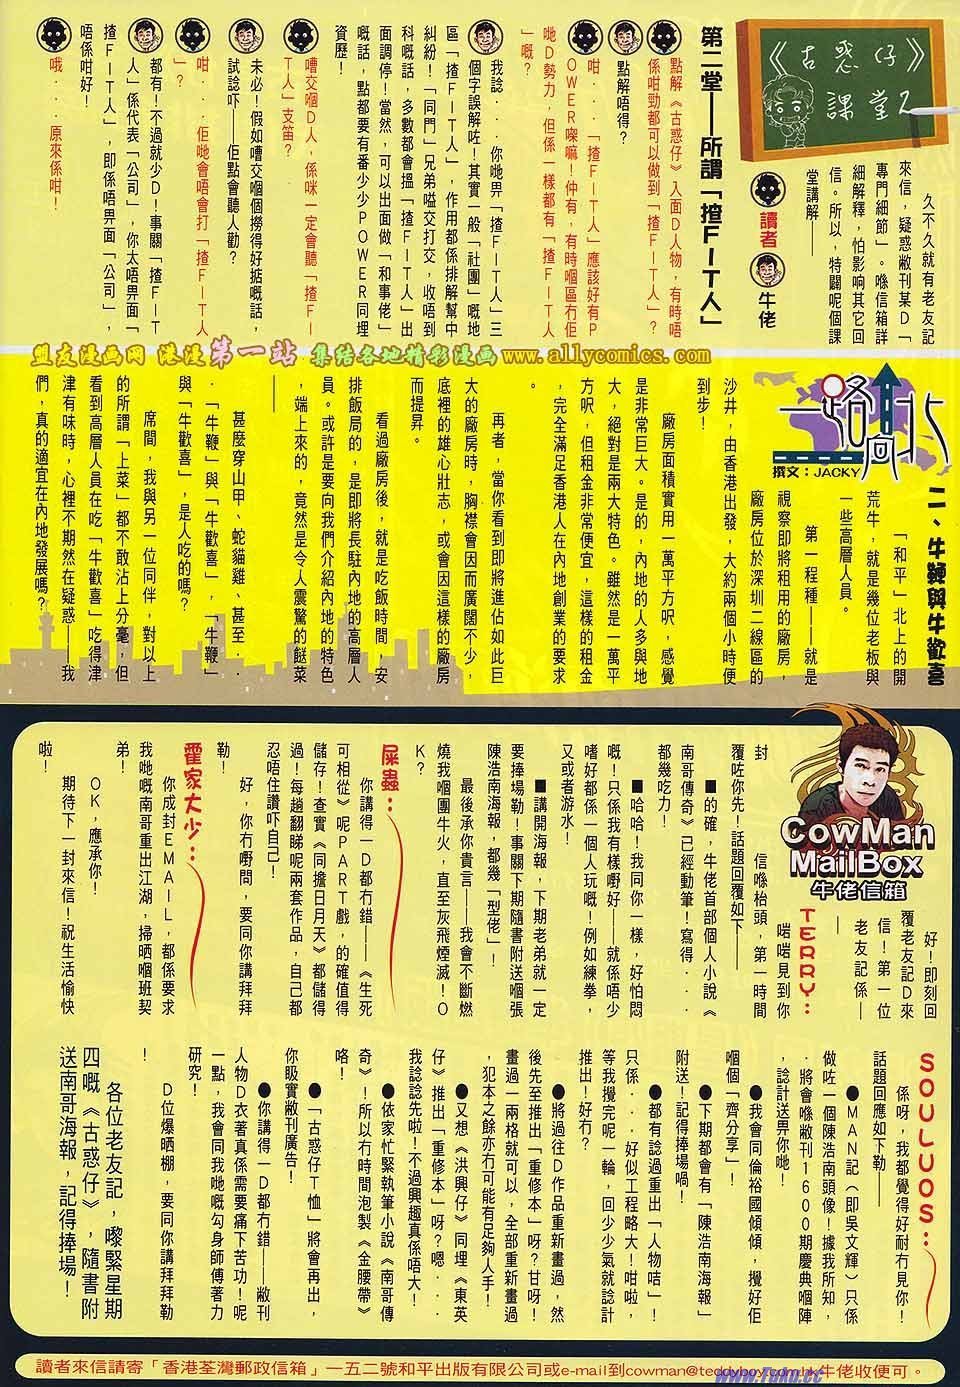 《古惑仔》
課堂2
久不久就有老友記
來信，疑惑敝刊某D「
專門細節」。喺信箱詳
細解釋，怕影响其它回
信。所以，特闢呢個課
堂講解——
讀者
牛佬
第二堂——所謂「揸FIT人」
點解《古惑仔》入面D人物，有時唔
係咁勁都可以做到「揸FIT人」？
點解唔得？
咁．．．「揸FIT人」應該好有P
OWER㗎嘛！仲有，有時嗰區冇佢
哋D勢力，但係一樣都有「揸FIT人
」嘅？
我諗．．．你哋畀「揸FIT人」三
個字誤解咗！其實一般「社團」嘅地
區「揸FIT人」，作用都係排解幫中
糾紛！「同門」兄弟嗌交打交，收唔到
科嘅話，多數都會搵「揸FIT人」出
面調停！當然，可以出面做「和事佬」
嘅話，點都要有番少少POWER同埋
資歷！
嘈交嗰D人，係咪一定會聽「揸FI
T人」支笛？
未必！假如嘈交嗰個撈得好掂嘅話，
試諗吓——佢點會聽人勸？
咁．．．佢哋會唔會打「揸FIT人
」？
都有！不過就少D！事關「揸FIT
人」係代表「公司」，你太唔畀面「
揸FIT人」，即係唔畀面「公司」，
唔係咁好！
哦．．．原來係咁！
盟友漫画网 港漫第一站 集结各地精彩漫画 www.allycomics.com
一路向北
撰文：JACKY
二、牛鞭與牛歡喜
「和平」北上的開
荒牛，就是幾位老板與
一些高層人員。
第一程種——就是
視察即將租用的廠房，
廠房位於深圳二線區的
沙井，由香港出發，大約兩個小時便
到步！
廠房面積實用一萬平方呎，感覺
是非常巨大。是的，內地的人多與地
大，絕對是兩大特色。雖然是一萬平
方呎，但租金非常便宜，這樣的租金
，完全滿足香港人在內地創業的要求
。
再者，當你看到即將進佔如此巨
大的廠房時，胸襟會因而廣闊不少，
底裡的雄心壯志，或會因這樣的廠房
而提昇。
看過廠房後，就是吃飯時間，安
排飯局的，是即將長駐內地的高層人
員。或許是要向我們介紹內地的特色
，端上來的，竟然是令人震驚的餸菜
——
甚麼穿山甲、蛇貓雞、甚至．
．「牛鞭」與「牛歡喜」，「牛鞭」
與「牛歡喜」，是人吃的嗎？
席間，我與另一位同伴，對以上
的所謂「上菜」都不敢沾上分毫，但
看到高層人員在吃「牛歡喜」吃得津
津有味時，心裡不期然在疑惑——我
們，真的適宜在內地發展嗎？
CowMan
MailBox
牛佬信箱
好！即刻回
覆老友記D來
信！第一位
老友記係—
—
TERRY：
啱啱見到你
信喺枱頭，第一時間
封
覆咗你先！話題回覆如下——
■的確，牛佬首部個人小說《
南哥傳奇》已經動筆！寫得．．
都幾吃力！
■哈哈！我同你一樣，好怕悶
嘅！只係我有樣嘢好——就係唔少
嗜好都係一個人玩嘅！例如練拳，
又或者游水！
■講開海報，下期老弟就一定
要捧場勒！事關下期隨書附送嗰張
陳浩南海報，都幾「型佬」！
最後承你貴言——我會不斷燃
燒我嗰團牛火，直至灰飛煙滅！O
K？
屎蟲：
你講得一D都冇錯——《生死
可相從》呢PART戲，的確值得
儲存！查實《同擔日月天》都儲得
過！每趟翻睇呢兩套作品，自己都
忍唔住讚吓自己！
好，你冇嘢問，要同你講拜拜
勒！
霍家大少：
你成封EMAIL，都係要求
我哋嘅南哥重出江湖，掃晒嗰班契
弟！
OK，應承你！
期待下一封來信！祝生活愉快
啦！
SOULUOS：
係呀，我都覺得好耐冇見你！
話題回應如下勒——
●MAN記（即吳文輝）只係
做咗一個陳浩南頭像！據我所知，
．將會喺敝刊1600期慶典嗰陣
，諗計送畀你哋！
●我會同倫裕國傾傾，攪好佢
嗰個「齊分享」！
●下期都會有「陳浩南海報」
附送！記得捧場喎！
●都有諗過重出「人物咭」！
只係．．．好似工程略大！咁啦，
等我攪完呢一輪，回少少氣就諗計
推出！好冇？
●將過往D作品重新畫過，然
後先至推出「重修本」呀？甘呀！
畫過一兩格就可以，全部重新畫過
，犯本之餘亦冇可能有足夠人手！
●又想《洪興仔》同埋《東英
仔》推出「重修本」呀？嗯．．．
我諗諗先啦！不過興趣真係唔大！
●依家忙緊執筆小說《南哥傳
奇》！所以冇時間泡製《金腰帶》
咯！
●「古惑仔T恤」將會再出，
你吸實敝刊廣告！
●你講得一D都冇錯——敝刊
人物D衣著真係需要痛下苦功！呢
一點，我會同我哋嘅勾身師傅著力
研究！
D位爆晒棚，要同你講拜拜勒
！
各位老友記，嚟緊星期
四嘅《古惑仔》，隨書附
送南哥海報，記得捧場！
讀者來信請寄「香港荃灣郵政信箱」一五二號和平出版有限公司或e-mail到cowman@teddyboy.com.hk牛佬收便可。
www.Tuku.cc